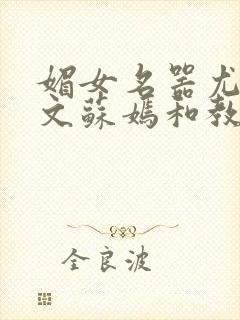 媚女名器尤
文蘇媽和教
全良波